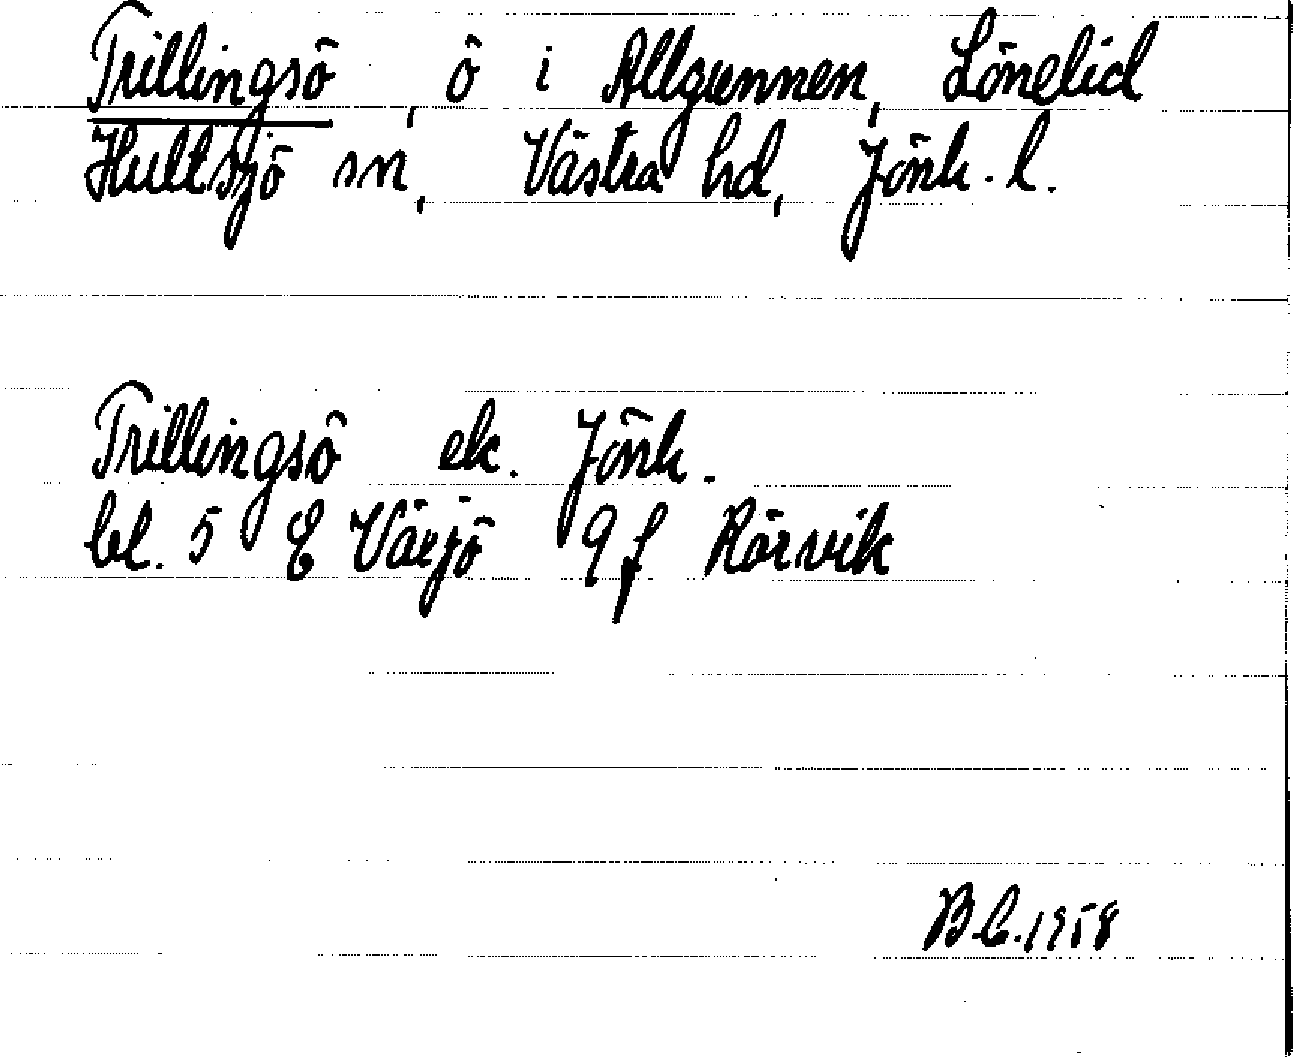 Trillingsö, ö i Allgunnen, Lönelid
Hultsjö sn, Västra hd, Jönk. l.
Trillingsö ek. Jönk.
bl. 5 E Växjö 9 f Rörvik
B.C. 1958